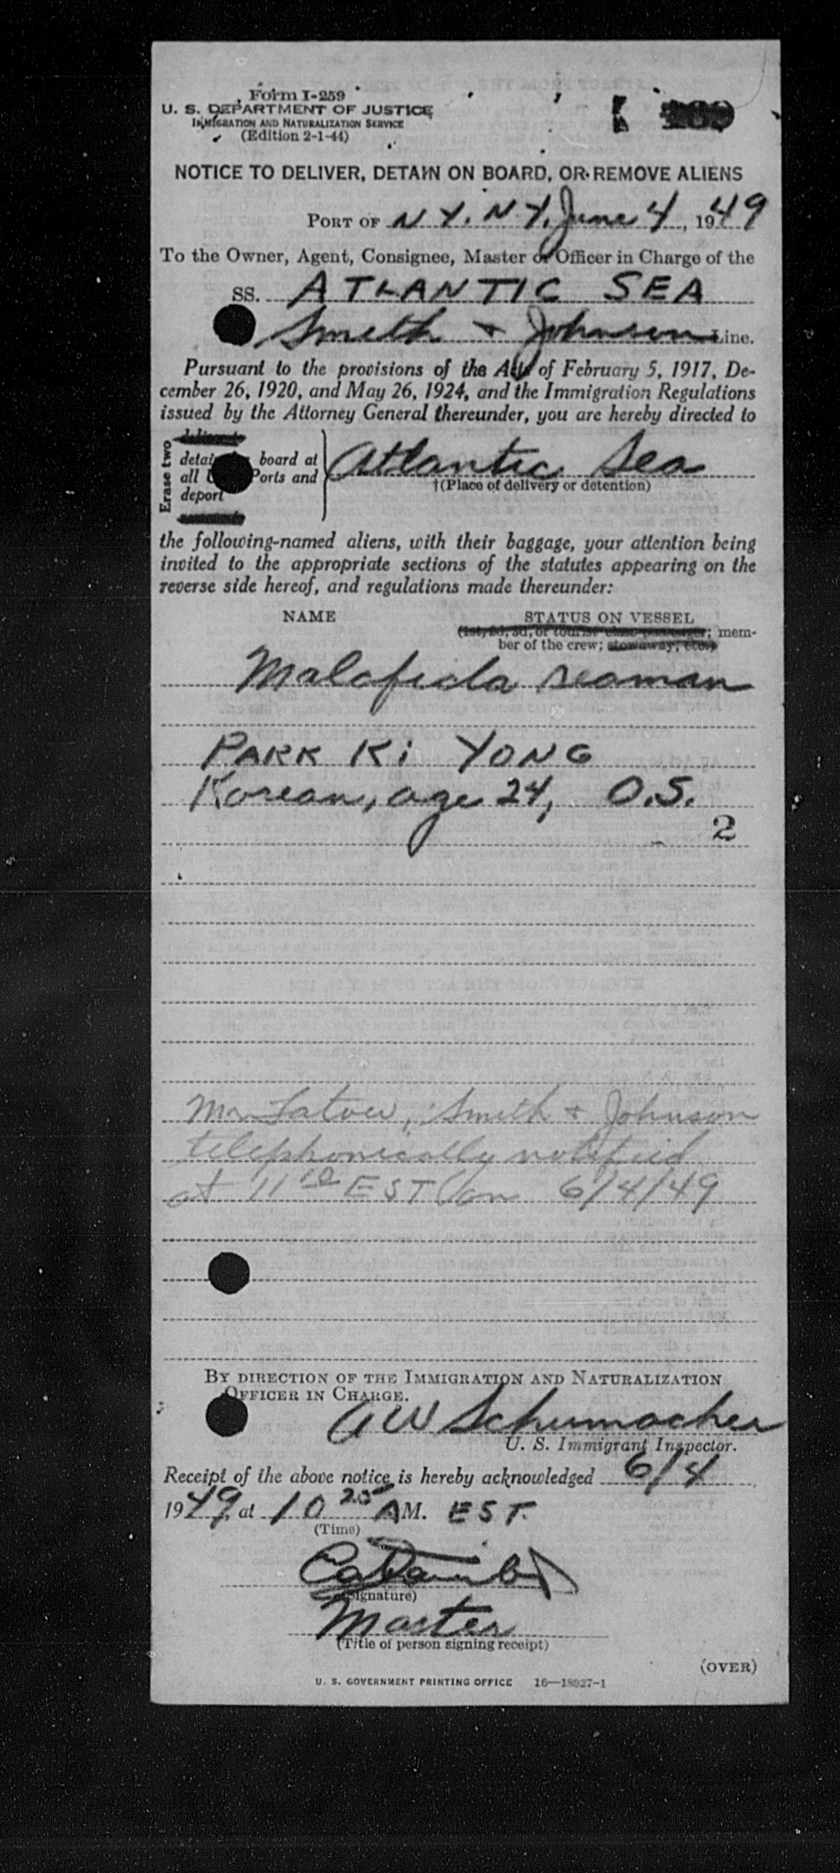 Form I-259
U. S. DEPARTMENT OF JUSTICE
IMMIGRATION AND NATURALIZATION SERVICE
(Edition 2-1-44)
NOTICE TO DELIVER, DETAIN ON BOARD, OR REMOVE ALIENS
PORT OF N.Y. N.Y. June 4, 1949
To the Owner, Agent, Consignee, Master or Officer in Charge of the
SS. ATLANTIC SEA
Smith + Johnson Line.
Pursuant to the provisions of the Acts of February 5, 1917, De-
cember 26, 1920, and May 26, 1924, and the Immigration Regulations
issued by the Attorney General thereunder, you are hereby directed to
Erase two
detain board at
all Ports and
deport
Atlantic Sea
†(Place of delivery or detention)
the following-named aliens, with their baggage, your attention being
invited to the appropriate sections of the statutes appearing on the
reverse side hereof, and regulations made thereunder:
NAME STATUS ON VESSEL
(1st, 2d, 3d, or tourist class passenger; mem-
ber of the crew; stowaway, etc.)
Malafida seaman
PARK Ki YONG
Korean, age 24, O.S.
2
Mr. , Smith + Johnson
telephonically notified
at 11 EST on 6/4/49
BY DIRECTION OF THE IMMIGRATION AND NATURALIZATION
OFFICER IN CHARGE.
A W Schumacher
U. S. Immigrant Inspector.
Receipt of the above notice is hereby acknowledged 6/4
1949 at 10 25 AM. EST.
(Time)
(Signature)
Master
(Title of person signing receipt)
(OVER)
U. S. GOVERNMENT PRINTING OFFICE 16—18927-1